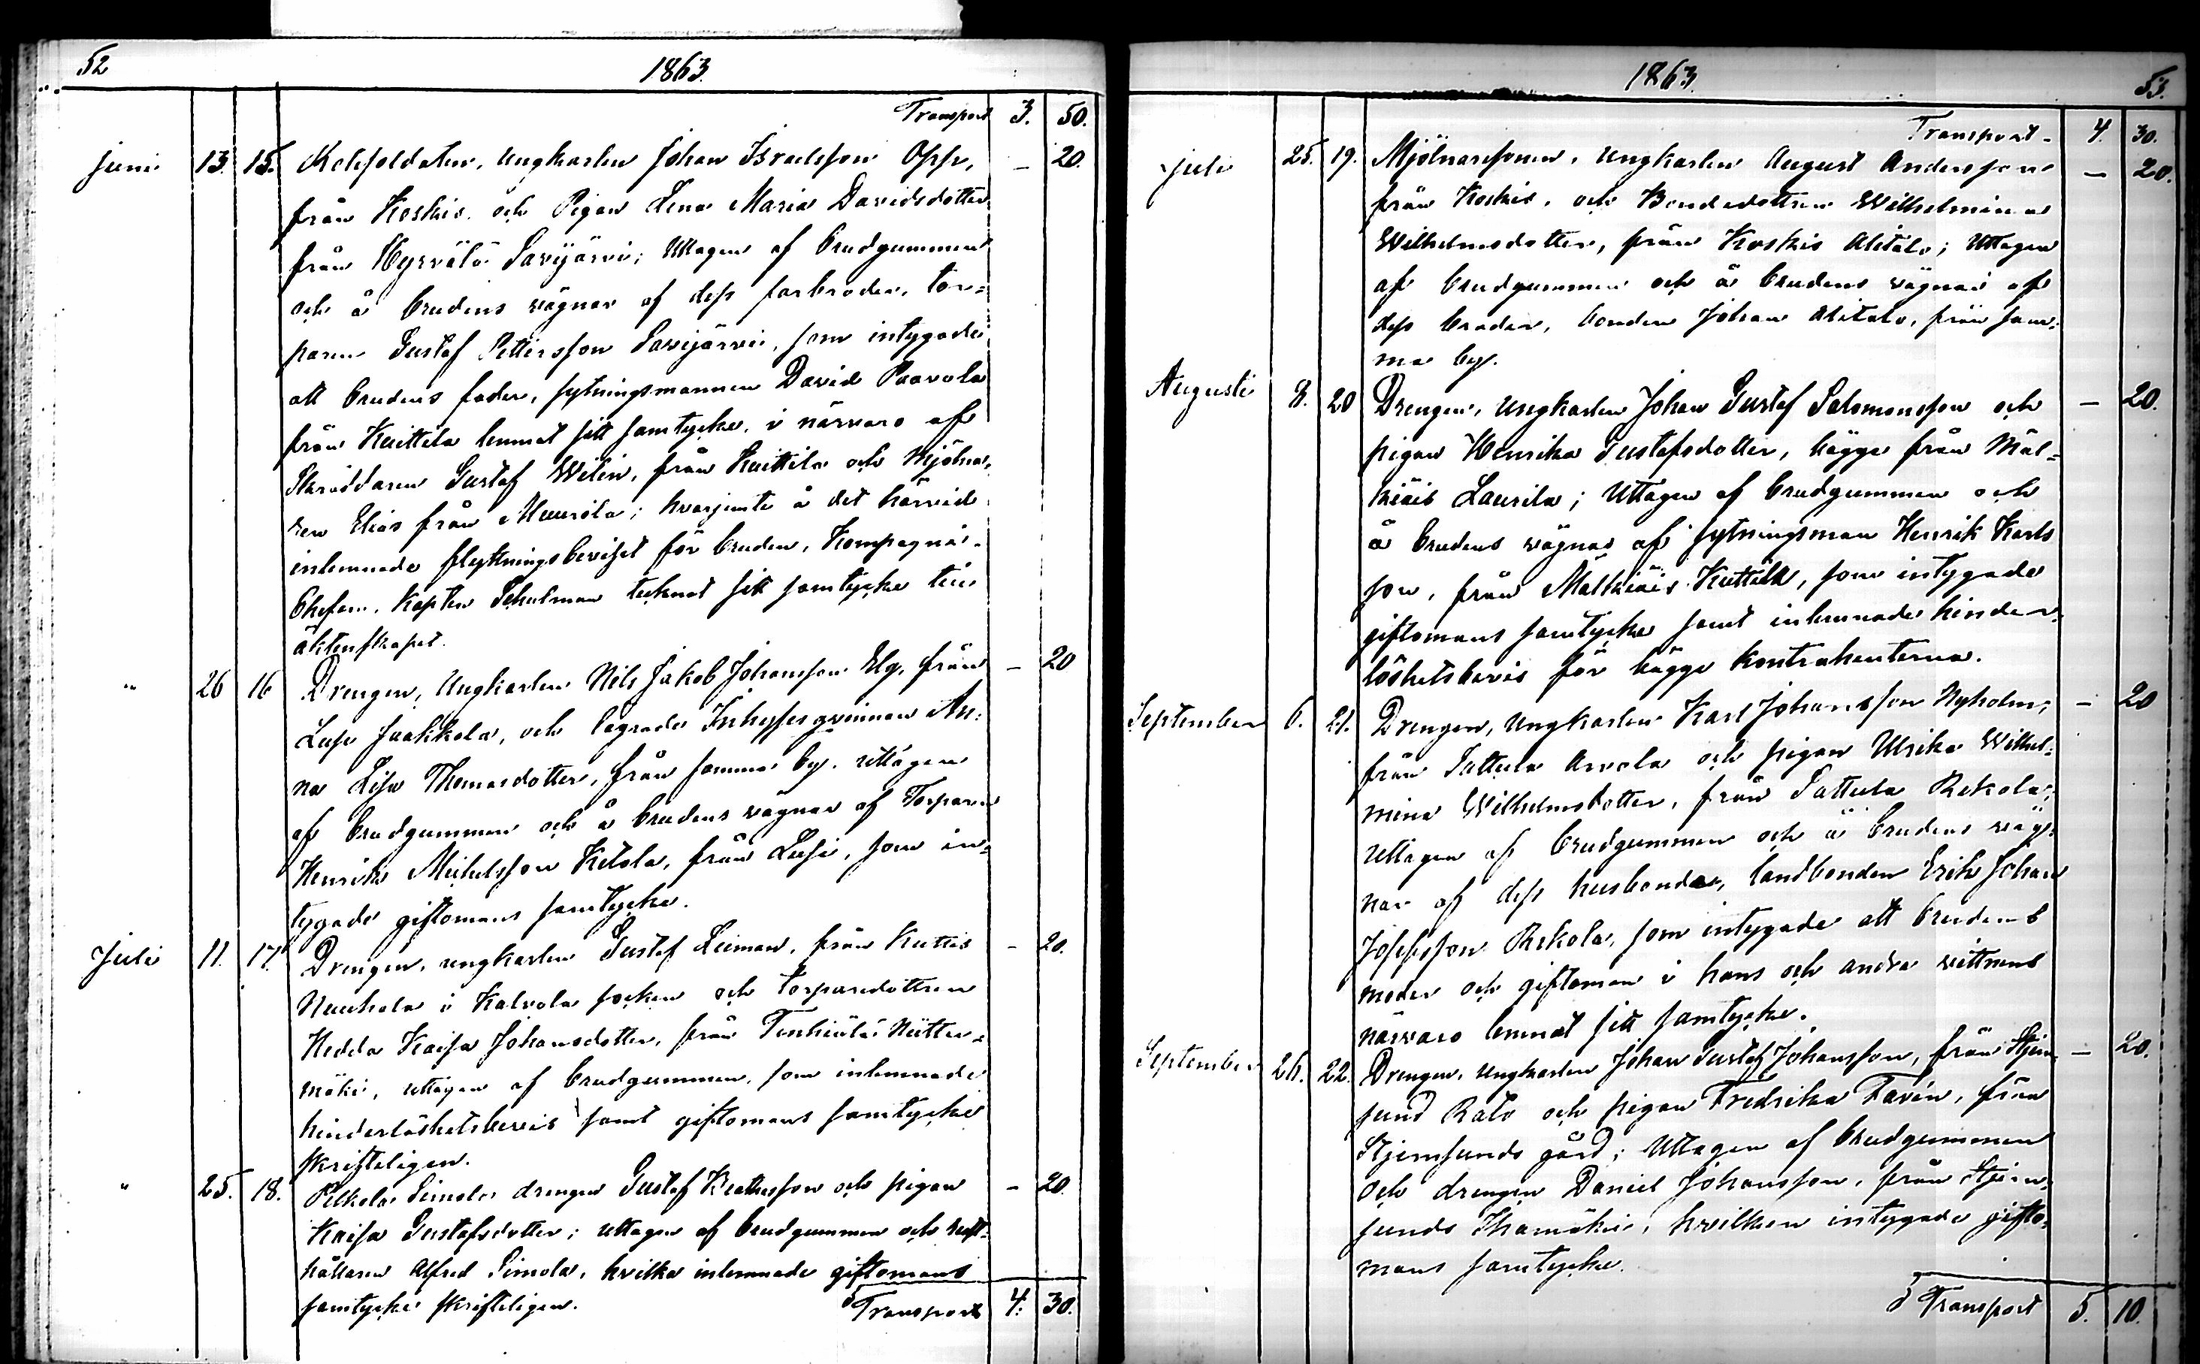 52
1863.
Transport 3. 50.
Juni 13. 15. Rotesoldaten, Ungkarlen Johan Israelsson Opp, — 20.
från Koskis, och Pigan Lena Maria Davidsdotter
från Hyrvälä Savijärvi; Uttagen af brudgummen
och å brudens vägnar af dess farbroder, tor-
paren Gustaf Pettersson Savijärvi, som intygade
att brudens fader, sytningsmannen David Paavola
från Kuittila lemnat sitt samtycke, i närvaro af
Skräddaren Gustaf Welin, från Kuittila och Mjölna-
ren Elias från Maurila; hvarjemte å det härvid
inlemnade flyttningsbeviset för bruden, Kompagni-
Chefen, Kapten Schulman tecknat sitt samtycke till
äktenskapet.
" 26 16 Drengen, Ungkarlen Nils Jakob Johansson Elg, från — 20
Lusi Jaakkola, och lägrade Inhysesqvinnan An-
na Lisa Thomasdotter, från samma by. uttagen
af brudgummen och å brudens vägnar af Torparen
Henrik Michelsson Ketola, från Lusi, som in-
tygade giftomans samtycke.
Juli 11. 17. Drengen, ungkarlen Gustaf Leiman, från Kuttis — 20.
Nauhala i Kalvola socken och torparedottren
Hedda Kaisa Johansdotter, från Tenhiälä Nütter-
mäki, uttagen af brudgummen, som inlemnade
hinderlöshetsbevis samt giftomans samtycke
skrifteligen.
" 25. 18. Pelkola Simola drengen Gustaf Mathesson och pigan — 20.
Kaisa Gustafsdotter; uttagen af brudgummen och rust-
hållaren Alfred Simola, hvilka inlemnade giftomans
samtycke skrifteligen. Transport 4. 30.
1863.
53.
Transport 4. 30.
Juli 25. 19. Mjölnaresonen, Ungkarlen August Andersson — 20.
från Koskis, och Bondedottren Wilhelmina
Wilhelmsdotter, från Koskis Alitalo; Uttagen
af brudgummen och å brudens vägnar af
dess broder, bonden Johan Alitalo, från sam-
ma by.
Augusti 8. 20 Drengen, Ungkarlen Johan Gustaf Salomonsson och — 20.
pigan Henrika Gustafsdotter, bägge från Mäl-
kiäis Laurila; Uttagen af brudgummen och
å brudens vägnar af sytningsman Henrik Karls
son, från Mälkiäis Kuttila, som intygade
giftomans samtycke samt inlemnade hinder-
löshetsbevis för bägge Kontrahenterna.
September 6. 21. Drengen, Ungkarlen Karl Johansson Nyholm, — 20
från Sattula Arvola och pigan Ulrika Wilhel-
mina Wilhelmsdotter, från Sattula Rekola;
uttagen af brudgummen och å brudens väg-
nar af dess husbonde, landbonden Erik Johan
Josefsson Rekola, som intygade att brudens
moder och giftoman i hans och andra vittnens
närvaro lemnat sitt samtycke.
September 26. 22. Drengen, Ungkarlen Johan Gustaf Johansson, från Stjern- — 20.
sund Kalo och pigan Fredrika Favén, från
Stjernsunds gård; Uttagen af brudgummen
och drengen Daniel Johansson, från Stjern-
sunds Ihamäki, hvilken intygade gifto-
mans samtycke.
Transport 5. 10.